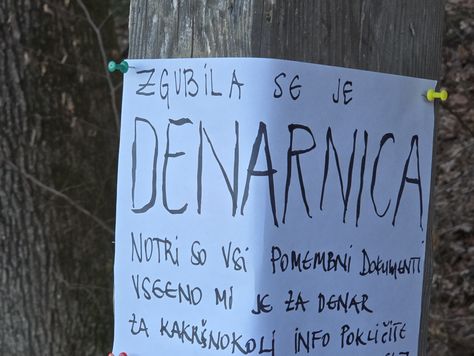 ZGUBILA SE JE
DENARNICA
NOTRI SO VSI POMEMBNI DOKUMENTI
VSEENO MI JE ZA DENAR
ZA KAKRŠNOKOLI INFO POKLIČITE